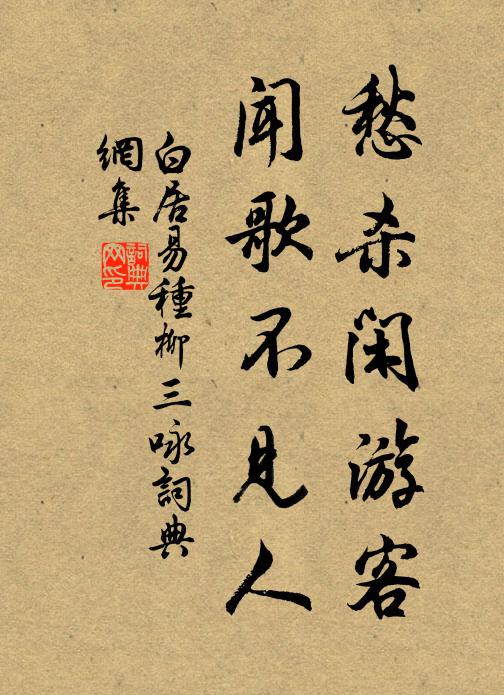 愁杀闲游客
闻歌不见人
白居易種柳三咏詞典
網集
詞典
网印